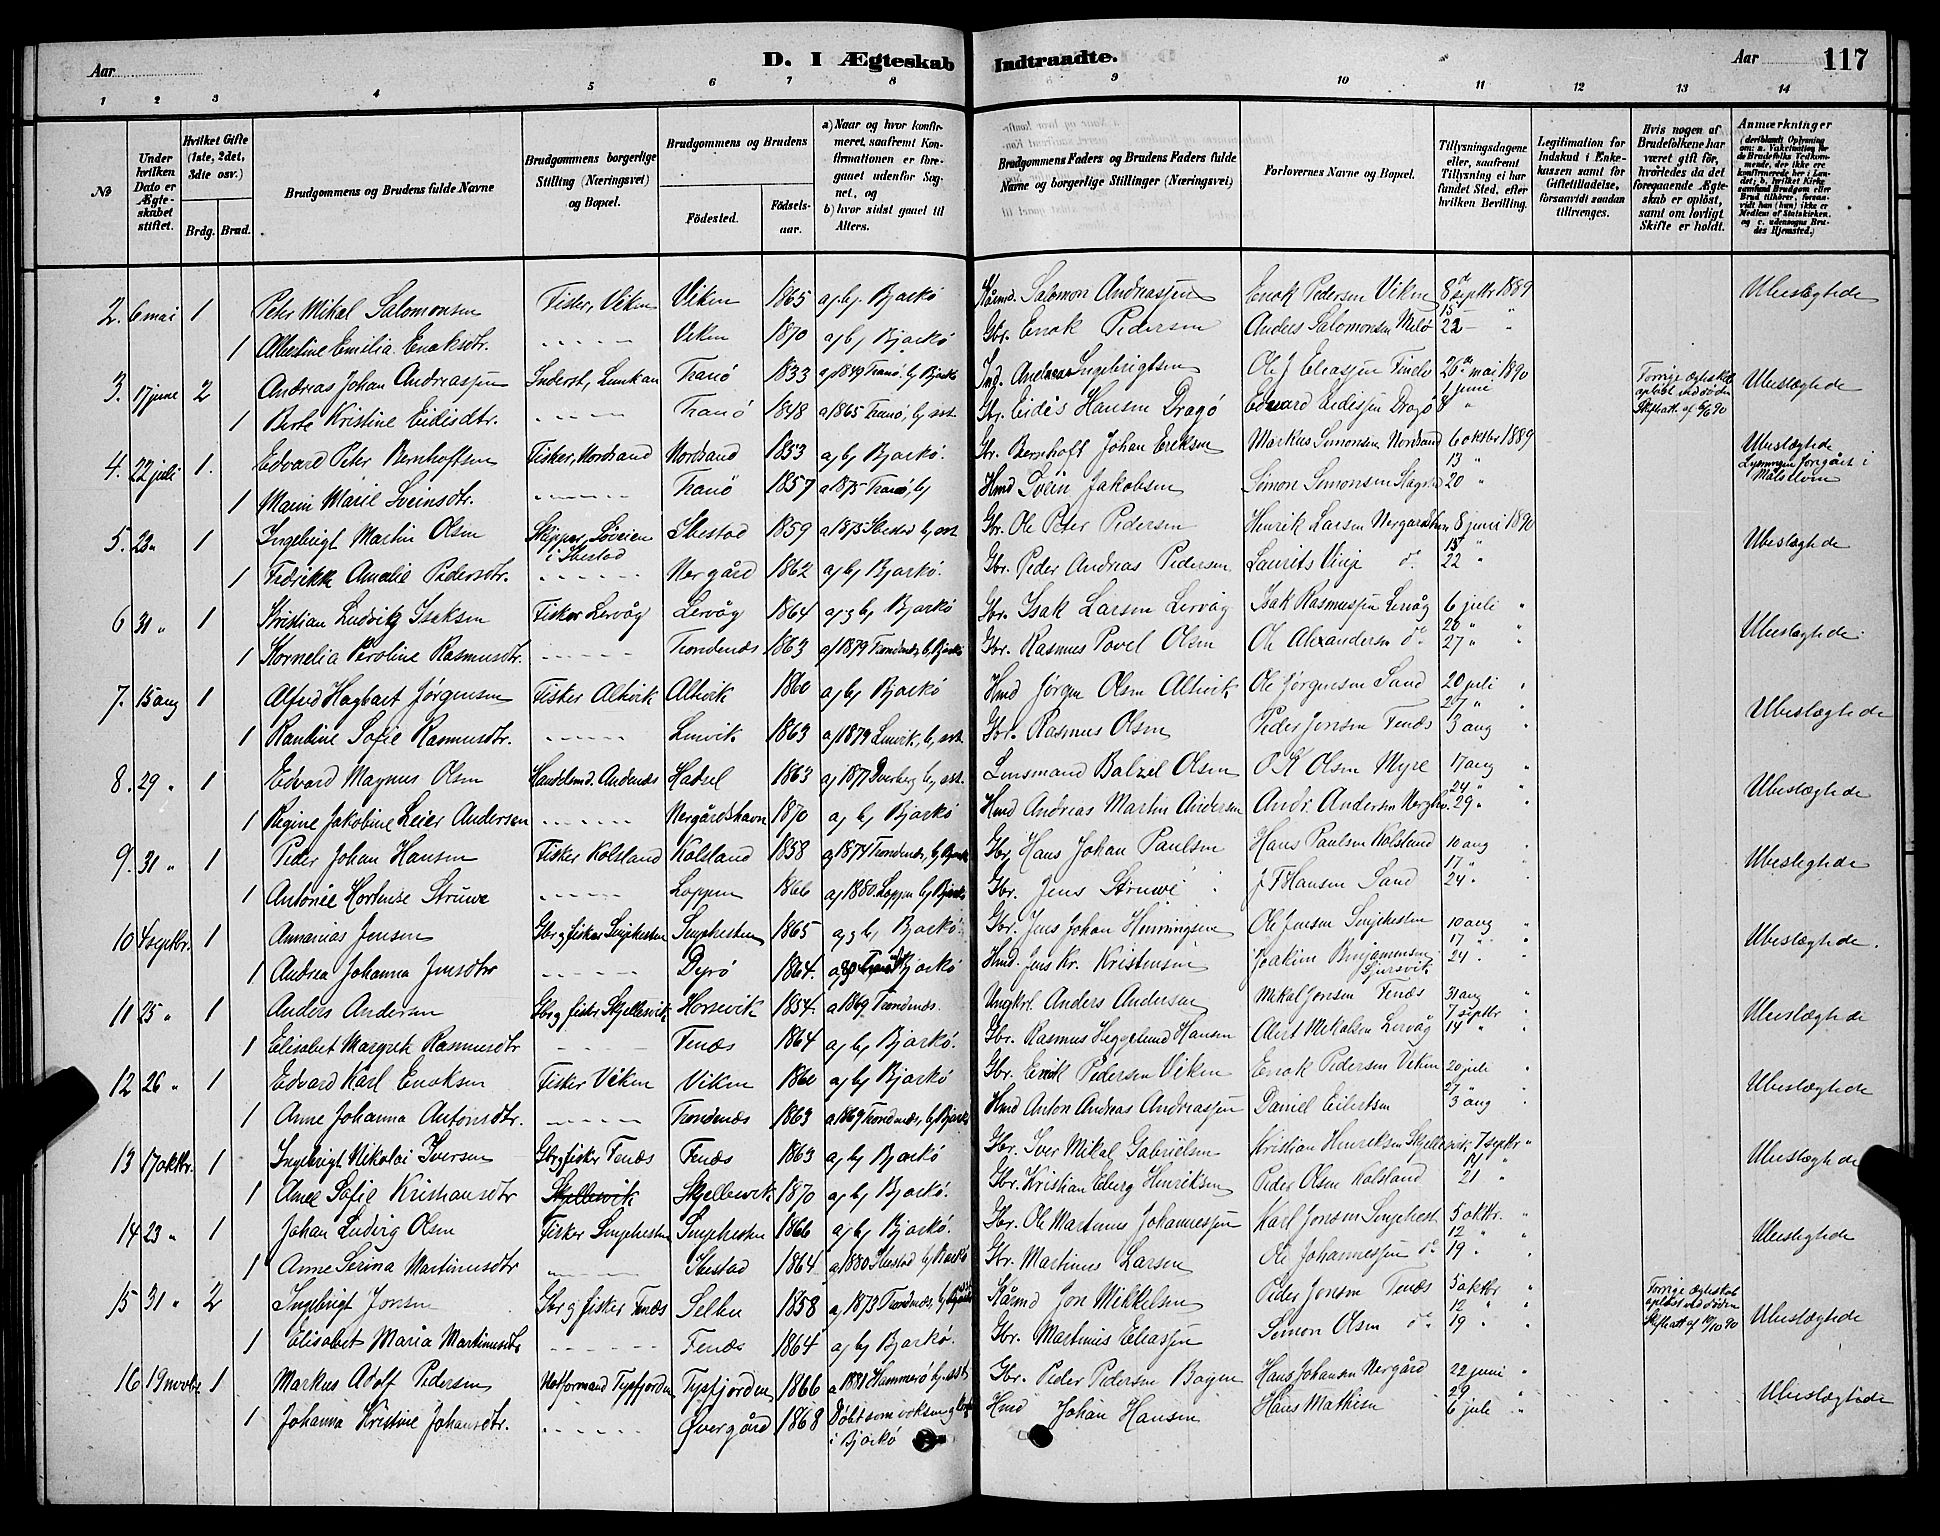 Aar
D. I Ægteskab
Indtraadte.
Aar
117
1 2 3 4 5 6 7 8 9 10 11 12 13 14
No
Under hvilken Dato er Ægteskabet stiftet.
Hvilket Gifte (1ste, 2det, 3die osv.)
Brdg. Brud.
Brudgommens og Brudens fulde Navne
Brudgommens borgerlige Stilling (Næringsvei) og Bopæl.
Brudgommens og Brudens
Fødested. Fødselsaar.
a) Naar og hvor konfirmeret, saafremt Konfirmationen er foregaaet udenfor Sognet, og
b) hvor sidst gaaet til Alters.
Brudgommens Faders og Brudens Faders fulde Navne og borgerlige Stillinger (Næringsvei)
Forlovernes Navne og Bopæl.
Tillysningsdagene eller, saafremt Tillysning ei har fundet Sted, efter hvilken Bevilling.
Legitimation for Indskud i Enkekassen samt for Giftetilladelse, forsaavidt saadan tiltrænges.
Hvis nogen af Brudefolkene har været gift før, hvorledes da det foregaaende Ægteskab er opløst, samt om lovligt Skifte er holdt.
Anmærkninger
2. 6 mai 1 Peter Mikal Salomonsen Fisker, Viken Viken 1865 a, b, Bjarkö Salomon Andreassen Enok Pedersen Viken 8de septbr 1889 Ubeslægtede
1 Albertine Emilia Enoksdtr. Viken 1870 a, b, Bjarkö Gbr. Enok Pedersen Anders Salomonsen 15 22 "
3. 17 june 2 Andreas Johan Andreassen Inderst, Lemkan Tranö 1833 a, 1849 Tranö. b, Bjarkö Ind. Andreas Ingebrigtsen Ole J Eliassen Finds 26de mai 1890 Forrige ægteskab opløst ved døden Skifteatt. af 6/6 90 Ubeslægtede
1 Berte Kristine Eidisdtr. Tranö 1848 a 1865 Tranö, b, sst. Gbr. Eidis Hansen Dragö Edvard Eidissen Dragö 1 juni 8 "
4. 22 juli 1. Edvard Peter Bernhoftsen Fisker, Nordsand Nordsand 1853 a, b, Bjarkö. Gbr. Bernhoft Johan Eriksen Markus Simonsen Nordsand 6 oktbr 1889 Ubeslægtede
Lysningen foregået i Målselven
1 Marie Sveinsdtr. Tranö 1857 a 1875 Tranö, b, Hmd Svein Jakobsen Simon Simonsen 13 20 "
5. 23 " 1 Ingebrigt Martin Olsen Skipper, Løveien i Ibestad Ibestad 1859 a 1875 Ibestad b, sst Gbr. Ole Peter Pedersen Henrik Larsen 8 juni 1890 Ubeslægtede
1 Fredrikke Amalie Pedersdtr. Nergård 1862 a, b, Bjarkö. Gbr. Peder Andreas Pedersen Laurits Vinje do 15 22 "
6 31 " 1 Kristian Ludvig Isaksen Fisker Lervåg Lervåg 1864 a, b, Bjarkö Gbr. Isak Larsen Lervåg Isak Rasmussen Lervåg 6 juli " Ubeslægtede.
1 Kornelia Peroline Rasmusdtr. Trondenæs 1863 a, 1879 Trondenæs, b, Bjarkö Gbr. Rasmus Povel Olsen Ole Alexandersen do 20 " 27 "
7. 15 aug 1 Alfred Hagbart Jørgensen Fisker Altevik Altevik 1860 a, b, Bjarkö Hmd Jørgen Olsen Altevik Ole Jørgensen Sand 20 juli " Ubeslægtede
1 Rautine Sofie Rasmusdtr. Lenvik 1863 a, 1879 Lenvik, b, sst. Gbr. Rasmus Olsen Peder Jensen Fenæs 27 " 3 aug "
8. 29 " 1 Edvard Magnus Olsen Handelsmd. Andenæs Hadsel 1863 a, 1877 Dverberg b, sst. Lensmand Balzel Olsen O K Olsen Myre 17 aug " Ubeslægtede
1 Regine Jakobine Leier Andersen Nergårdshavn 1870 a, b, Bjarkö Hmd Andreas Martin Andersen Andr. Andersen 24 " 29 "
9. 31 " 1 Peder Johan Hansen Fisker Kolsland Kolsland 1858 a 1874 Trondenæs, b, Bjarkö Gbr. Hans Johan Paulsen Hans Paulsen Kolsland 10 aug " Ubeslægtede
1 Antonie Hortense Struwe Loppen 1866 a, 1880 Loppen b, Bjarkö Gbr. Jens Struwe J F Hansen Sand 17 " 24 "
10 4 septbr. 1 Annanias Jensen Gbr og fisker Senjehesten Senjehesten 1865 a, b, Bjarkö. Gbr. Jens Johan Henningsen Ole Jensen Senjehesten 10 aug " Ubeslægtede.
1 Andrea Johanna Jensdtr Dyrö 1864. Bjarkö Hmd. Jens Kr. Kristensen Joakim Benjaminsen 17 " 24 "
11 25 " 1 Anders Andersen Gbr og fisker Skjellesvik Horsevik 1854. a 1869 Trondenæs. Ungkrl. Anders Andersen Mikal Jensen Fenæs 31 aug " Ubeslægtede
1 Elisabet Margrete Rasmusdtr Fenæs 1864 a, b, Bjarkö. Gbr. Rasmus Heggelund Hansen Albert Mikalsen Lervåg 7 septbr " 14 "
12 26 " 1 Edvard Karl Enoksen Fisker Viken Viken 1860 a, b, Bjarkö Gbr. Enok Pedersen Viken Enok Pedersen Viken 20 juli " Ubeslægtede
1 Anne Johanna Antonsdtr. Trondenæs 1863 a 1869 Trondenæs, b, Bjarkö Hmd Anton Andreas Andreassen Daniel Eilertsen 27 " 3 aug "
13 17 oktbr. 1 Ingebrigt Nikolai Iversen Gbr og fisker Fenæs Fenæs 1863 a, b, Bjarkö Gbr. Iver Mikal Gabrielsen Kristian Henriksen Skjellesvik 7 septbr " Ubeslægtede
1 Anne Sofie Kristiansdtr Skjellesvik Skjellesvik 1870 a, b, Bjarkö. Gbr. Kristian Edberg Henriksen Peder Olsen Kolsland 14 " 21 "
14 23 " 1 Johan Ludvig Olsen Fisker Senjehesten Senjehesten 1866 a, b, Bjarkö. Gbr. Ole Martinus Johannessen Karl Jensen Senjehest 5 oktbr. " Ubeslægtede
1 Anne Serina Martinusdtr Ibestad 1864. a, 1880 Ibestad b, Bjarkö Gbr. Martinus Larsen Ole Johannessen do 12 " 19 "
15 31 " 2 Ingebrigt Jonsen Gbr og fisker Fenæs Selbu 1858 a, 1873 Trondenæs, b, Bjarkö Kårmd Jon Mikkelsen Peder Jensen Fenæs 5 oktbr " Forrige ægteskab opløst ved døden Skifteatt af 19/10 90 Ubeslægtede
1 Elisabet Maria Martinusdtr Fenæs 1864 a, b, Bjarkö. Gbr. Martinus Eliassen Simon Olsen do 12 " 19 "
16 19 novbr 1 Markus Adolf Pedersen Notformand Tysfjorden Tysfjorden 1866 a 1881 Hammerö b, sst Gbr. Peder Pedersen Bogen Hans Johansen Nergård 22 juni " Ubeslægtede
1 Johanna Kristine Johansdtr. Øvergård 1868 Döbt som voksen i Bjarkö Hmd Johan Hansen Hans Mathisen 29 " 6 juli "